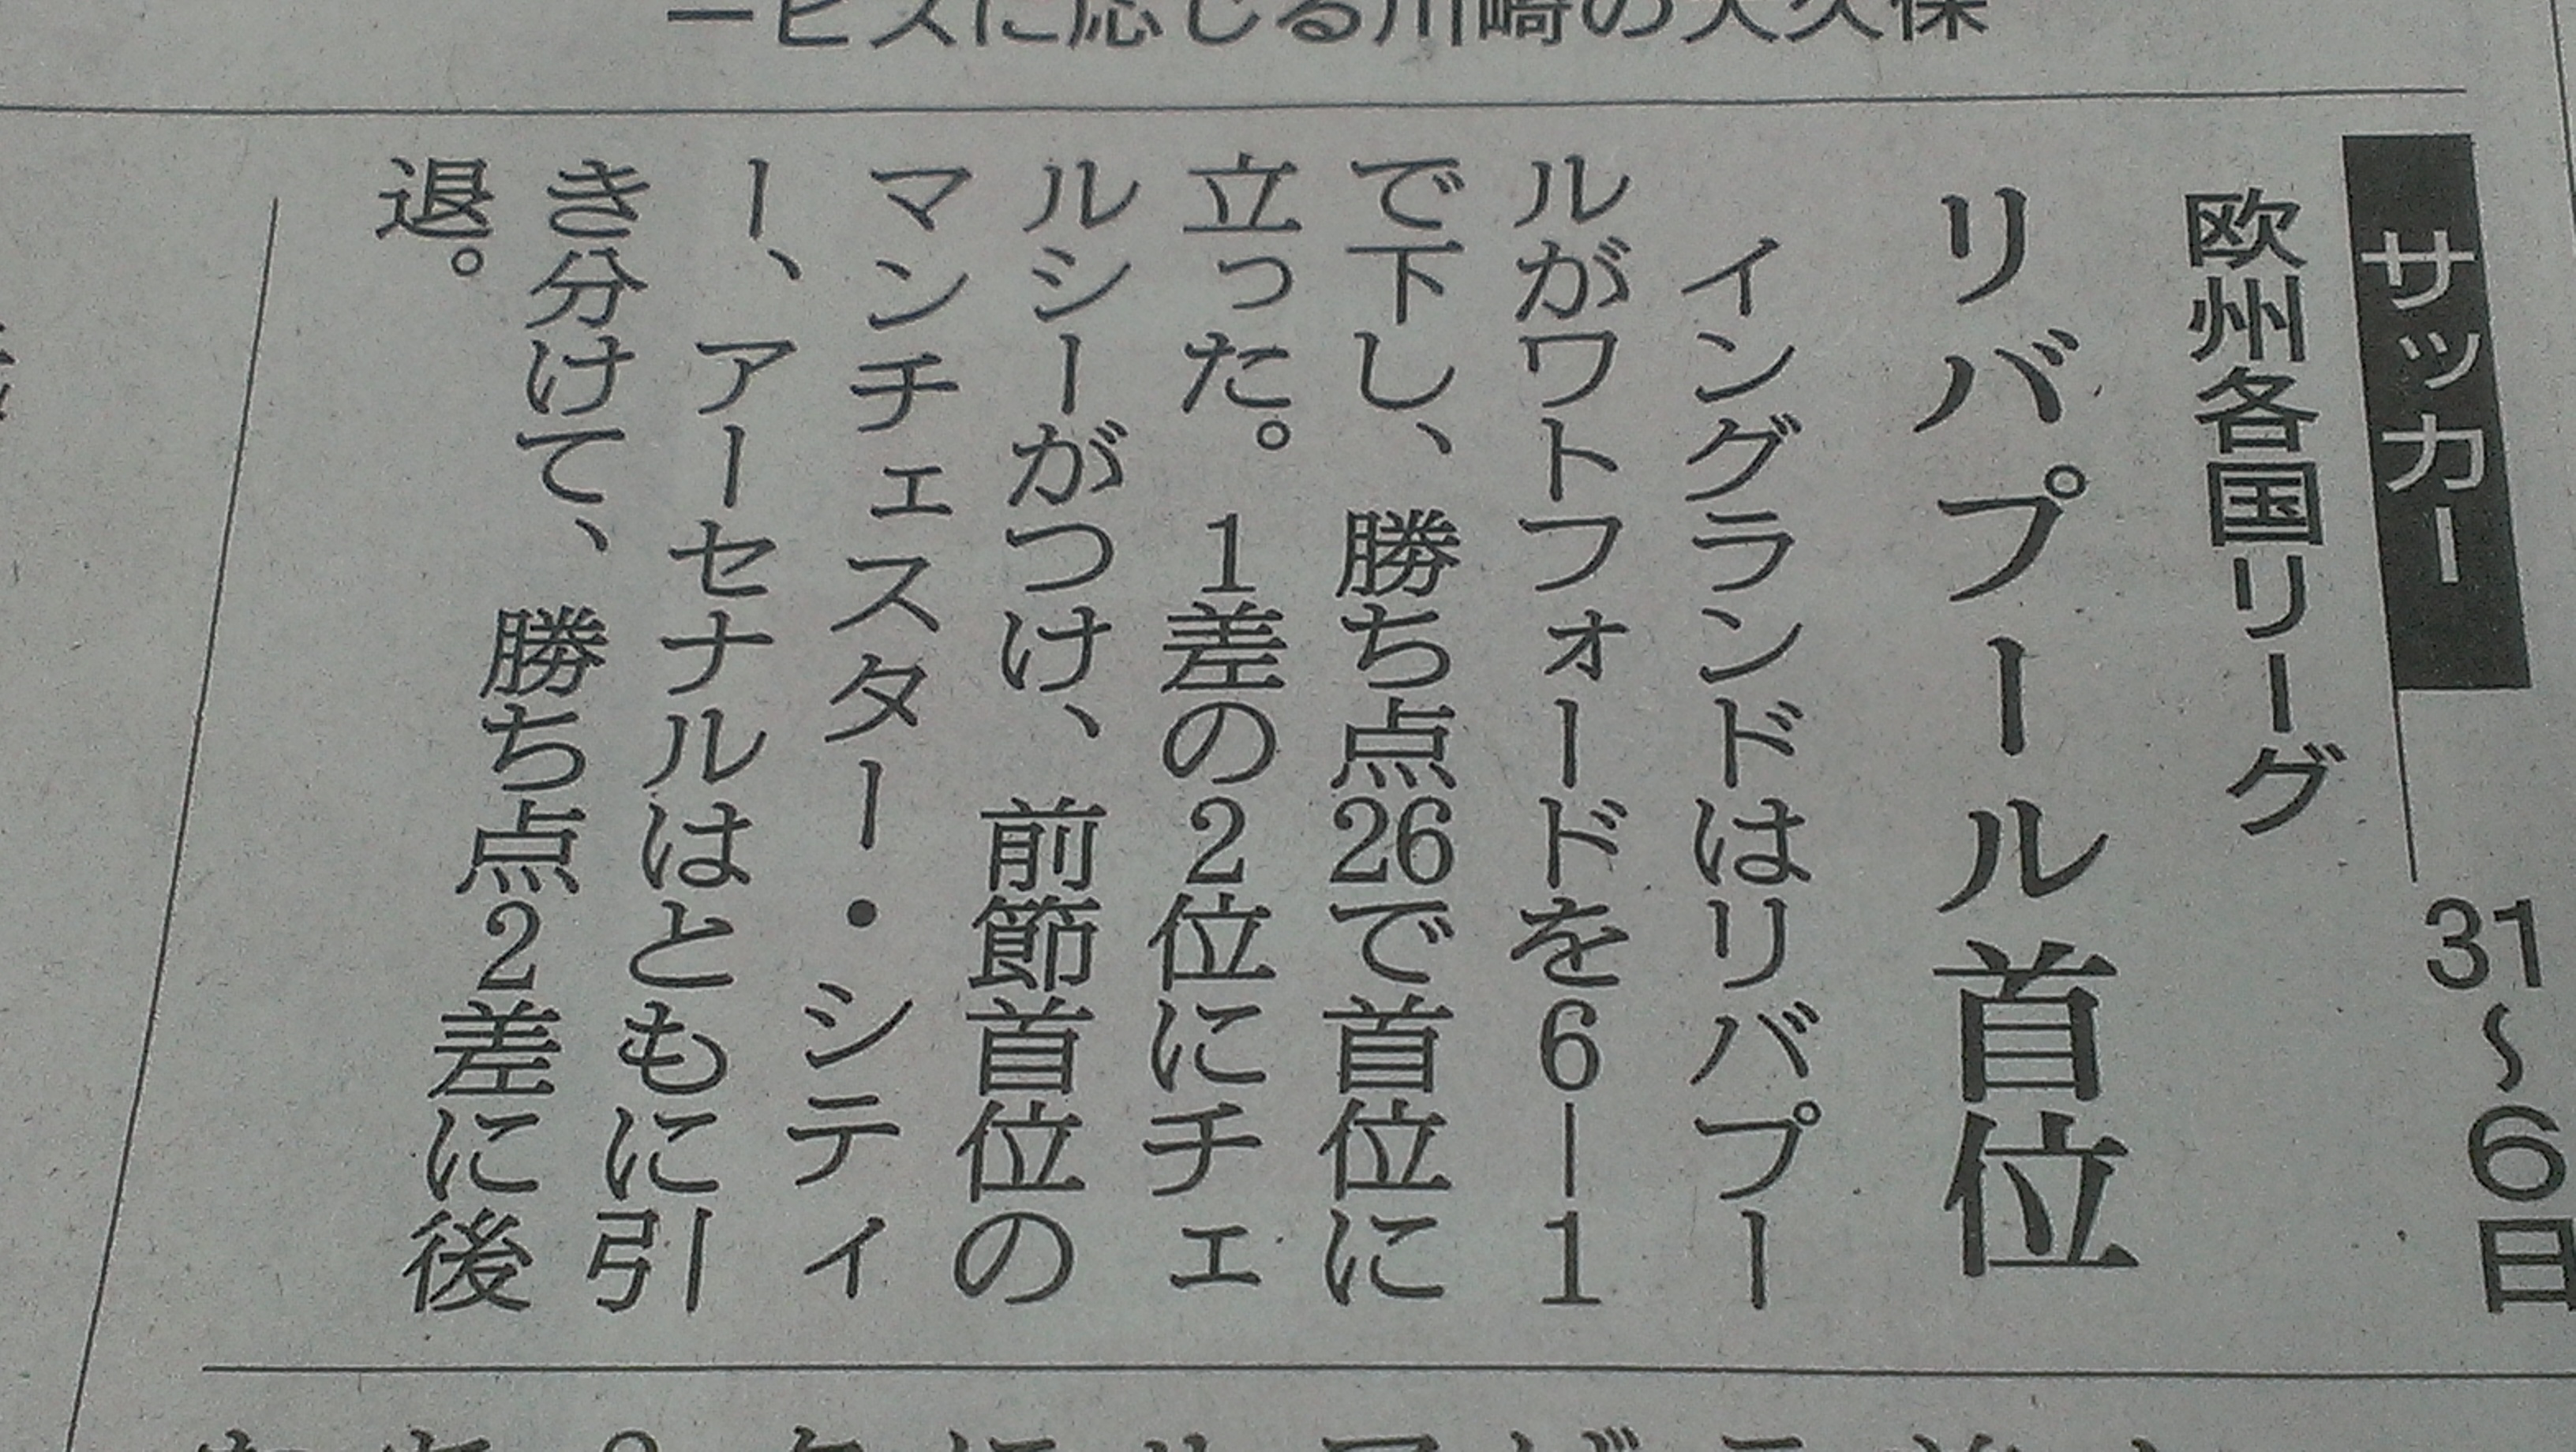 ービスに応じる川崎の大久保
サッカー
31〜6日
欧州各国リーグ
リバプール首位
イングランドはリバプー
ルがワトフォードを6―1
で下し、勝ち点26で首位に
立った。1差の2位にチェ
ルシーがつけ、前節首位の
マンチェスター・シティ
ー、アーセナルはともに引
き分けて、勝ち点2差に後
退。